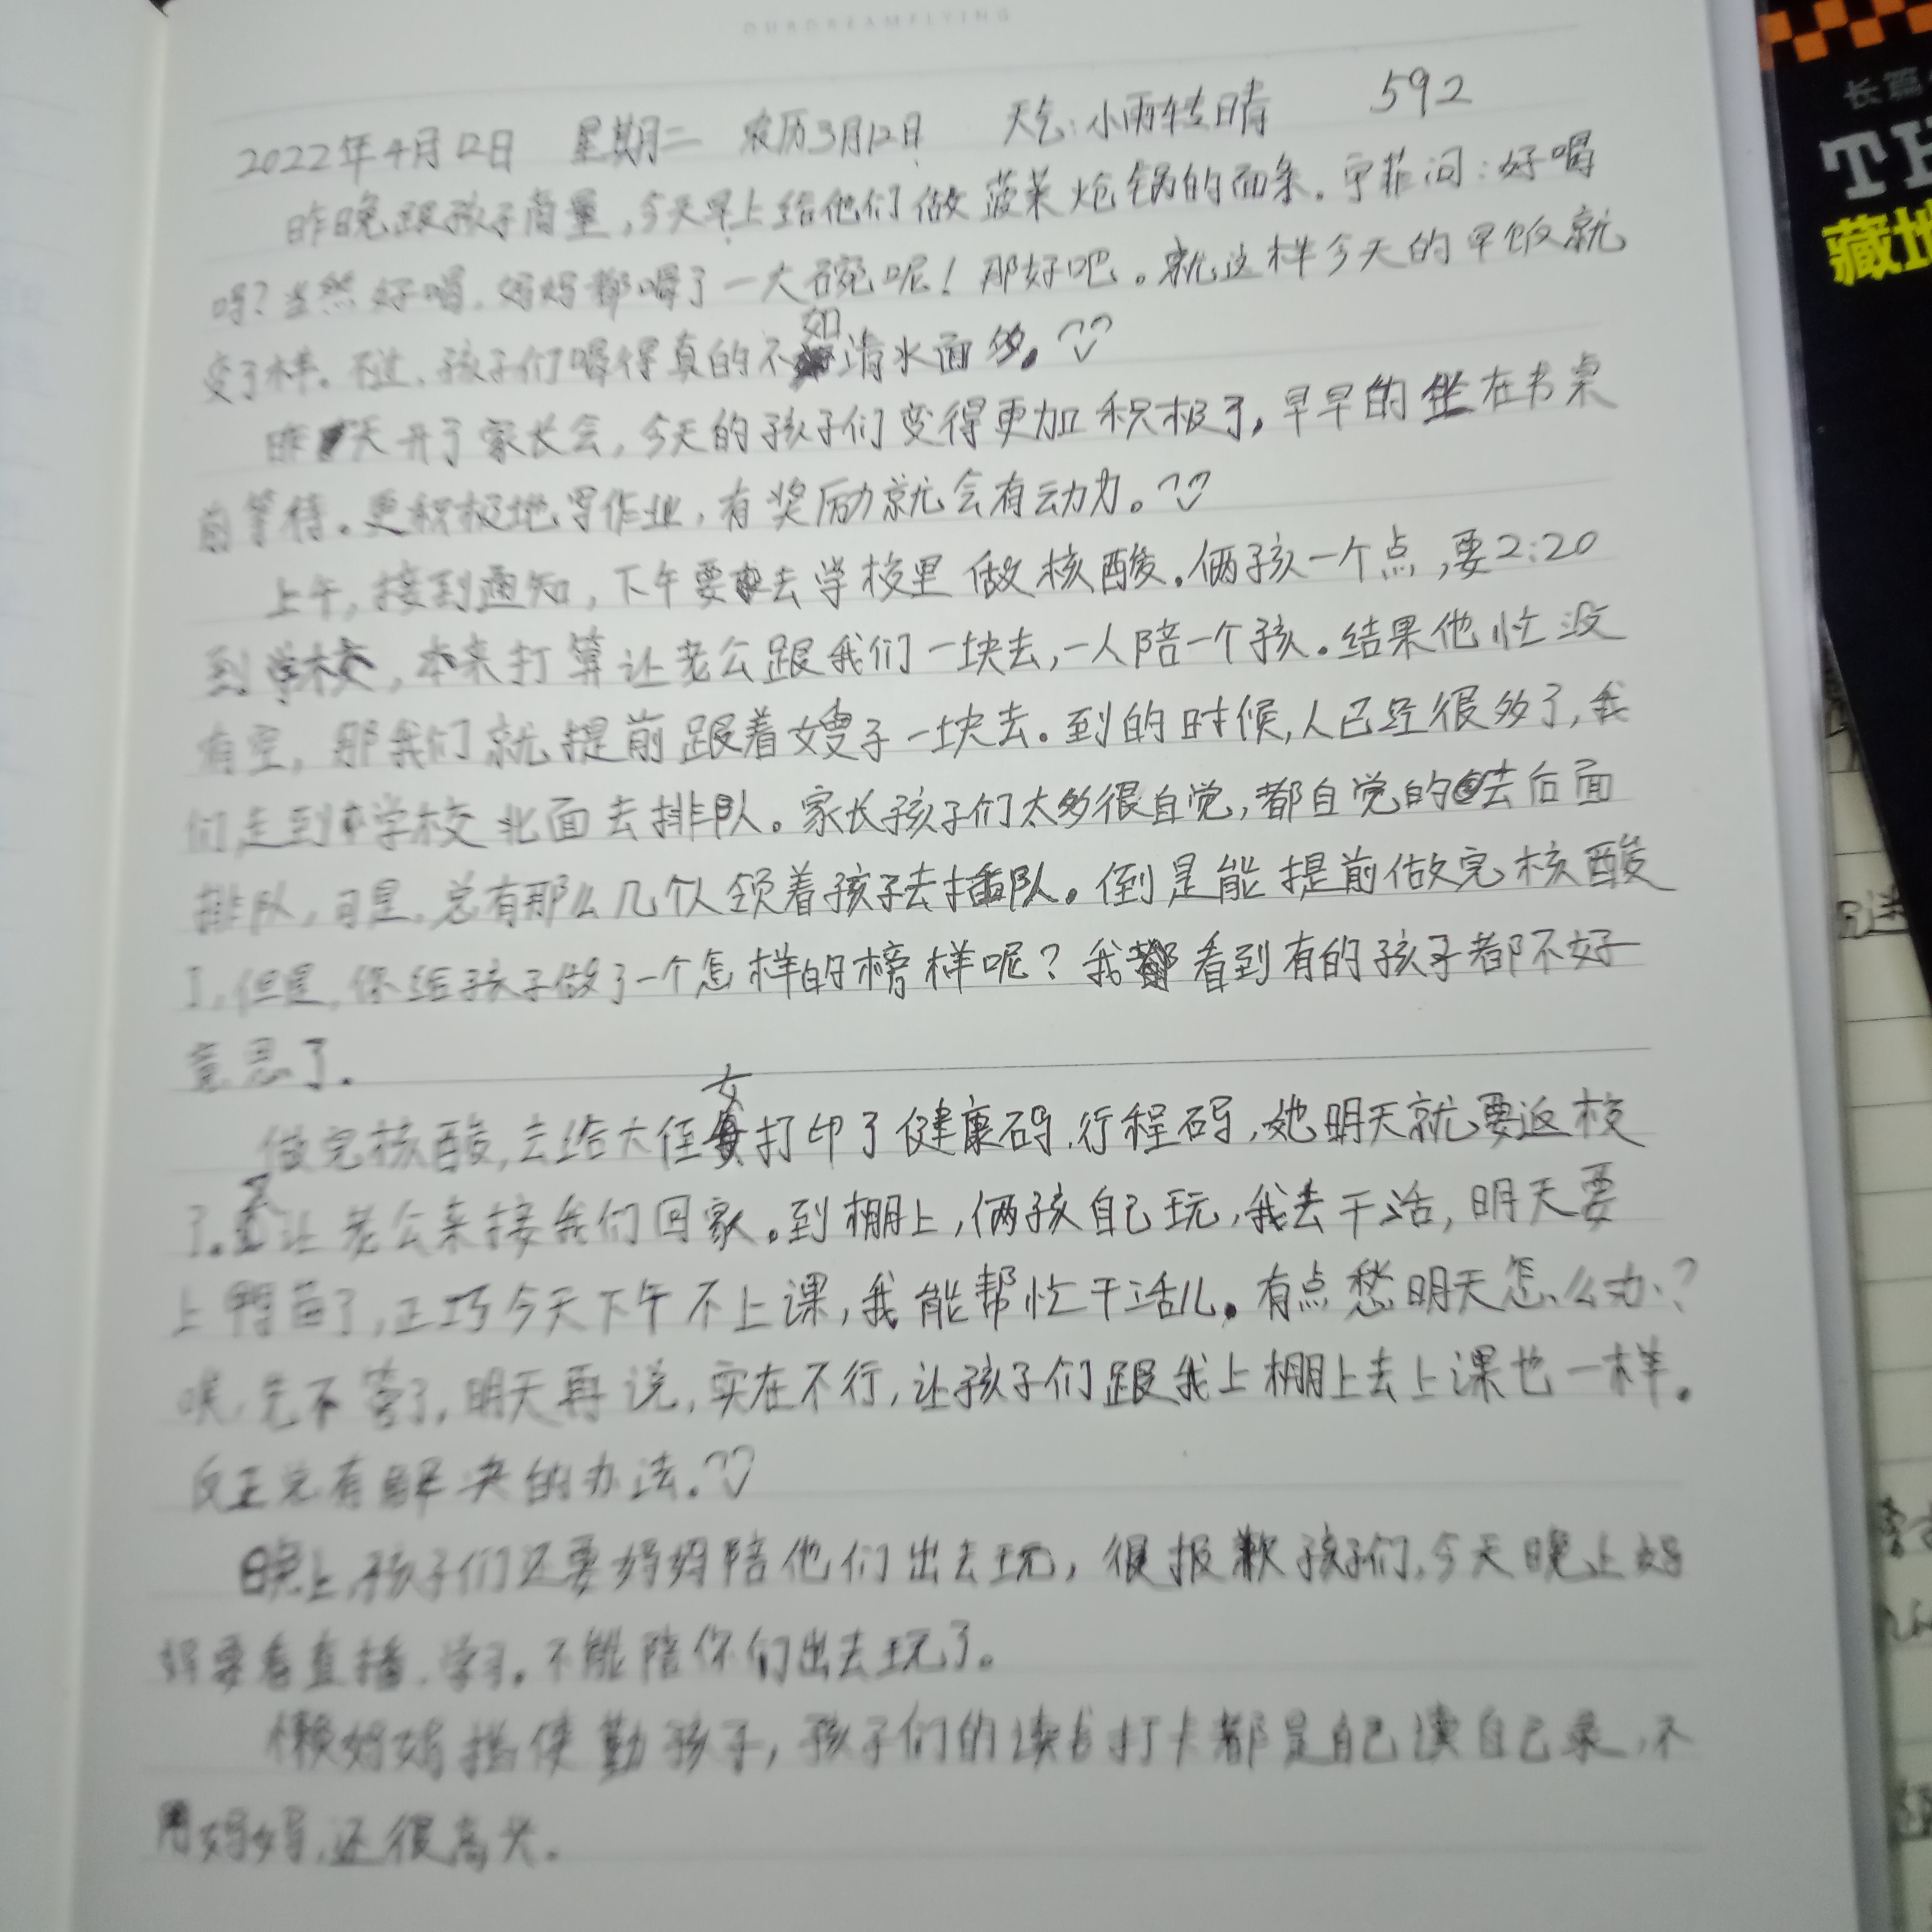 OURDREAMFLYING
2022年4月12日 星期二 农历3月12日 天气:小雨转晴 592
昨晚跟孩子商量,今天早上给他们做菠菜炝锅的面条。宁菲问:好喝
吗?当然好喝,妈妈都喝了一大碗呢!那好吧。就这样今天的早饭就
变了样。不过,孩子们喝得真的不如清水面多。
昨天开了家长会,今天的孩子们变得更加积极了,早早的坐在书桌
前等待。更积极地写作业,有奖励就会有动力。
上午,接到通知,下午要去学校里做核酸。俩孩一个点,要2:20
到学校,本来打算让老公跟我们一块去,一人陪一个孩。结果他忙没
有空,那我们就提前跟着嫂子一块去。到的时候,人已经很多了,我
们走到学校北面去排队。家长孩子们太多很自觉,都自觉的去后面
排队,可是,总有那么几个人领着孩子去插队。倒是能提前做完核酸
了,但是,你给孩子做了一个怎样的榜样呢?我看到有的孩子都不好
意思了。
做完核酸,去给大侄女打印了健康码,行程码,她明天就要返校
了。让老公来接我们回家。到棚上,俩孩自己玩,我去干活,明天要
上鸭苗了,正巧今天下午不上课,我能帮忙干活儿。有点愁明天怎么办?
唉,先不管了,明天再说,实在不行,让孩子们跟我上棚上去上课也一样。
反正总有解决的办法。
晚上,孩子们还要妈妈陪他们出去玩,很报歉孩子们,今天晚上妈
妈要看直播,学习。不能陪你们出去玩了。
懒妈妈指使勤孩子,孩子们的读书打卡都是自己读自己录,不
用妈妈,还很高兴。
长篇
TH
藏地